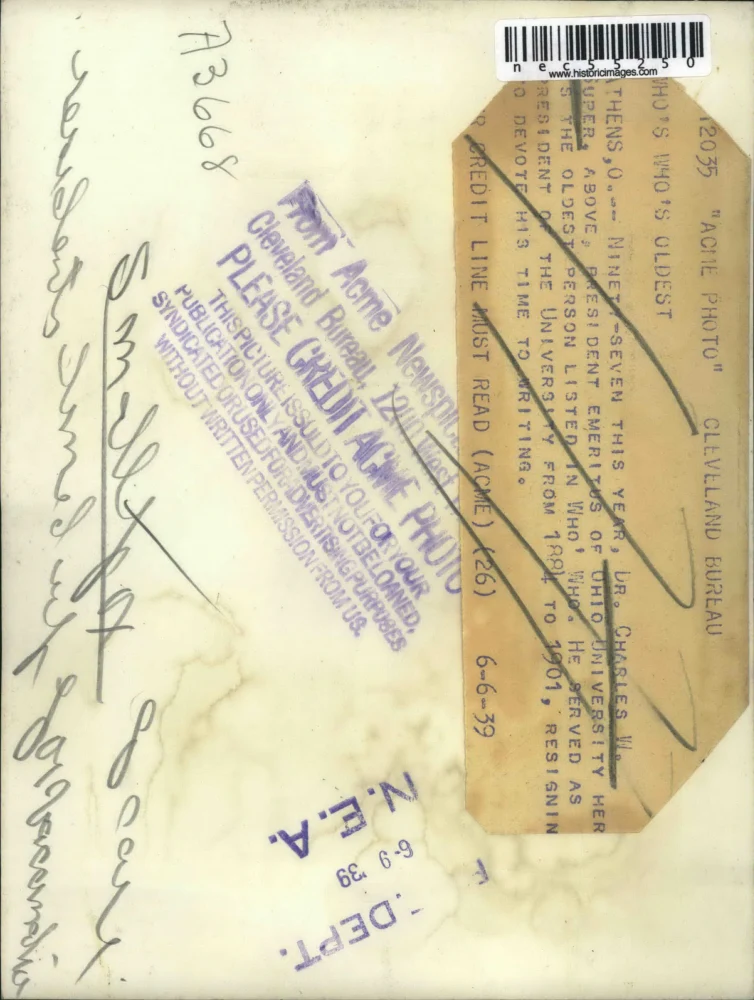 nec55250
www.historicimages.com
12035 "ACME PHOTO" CLEVELAND BUREAU
WHO'S WHO'S OLDEST
ATHENS,O.-- NINETY-SEVEN THIS YEAR, DR. CHARLES W.
SUPER, ABOVE, PRESIDENT EMERITUS OF OHIO UNIVERSITY HER
IS THE OLDEST PERSON LISTED IN WHO' WHO. HE SERVED AS
PRESIDENT OF THE UNIVERSITY FROM 1884 TO 1901, RESIGNIN
TO DEVOTE HIS TIME TO WRITING.
CREDIT LINE MUST READ (ACME) (26) 6-6-39
From Acme Newspic
Cleveland Bureau, 1240 West
PLEASE CREDIT ACME PHOTO
THIS PICTURE IS SOLD TO YOU FOR YOUR
PUBLICATION ONLY AND MUST NOT BE LOANED,
SYNDICATED OR USED FOR ADVERTISING PURPOSES
WITHOUT WRITTEN PERMISSION FROM US.
A3668
N.E.A.
6-9 '39
DEPT.